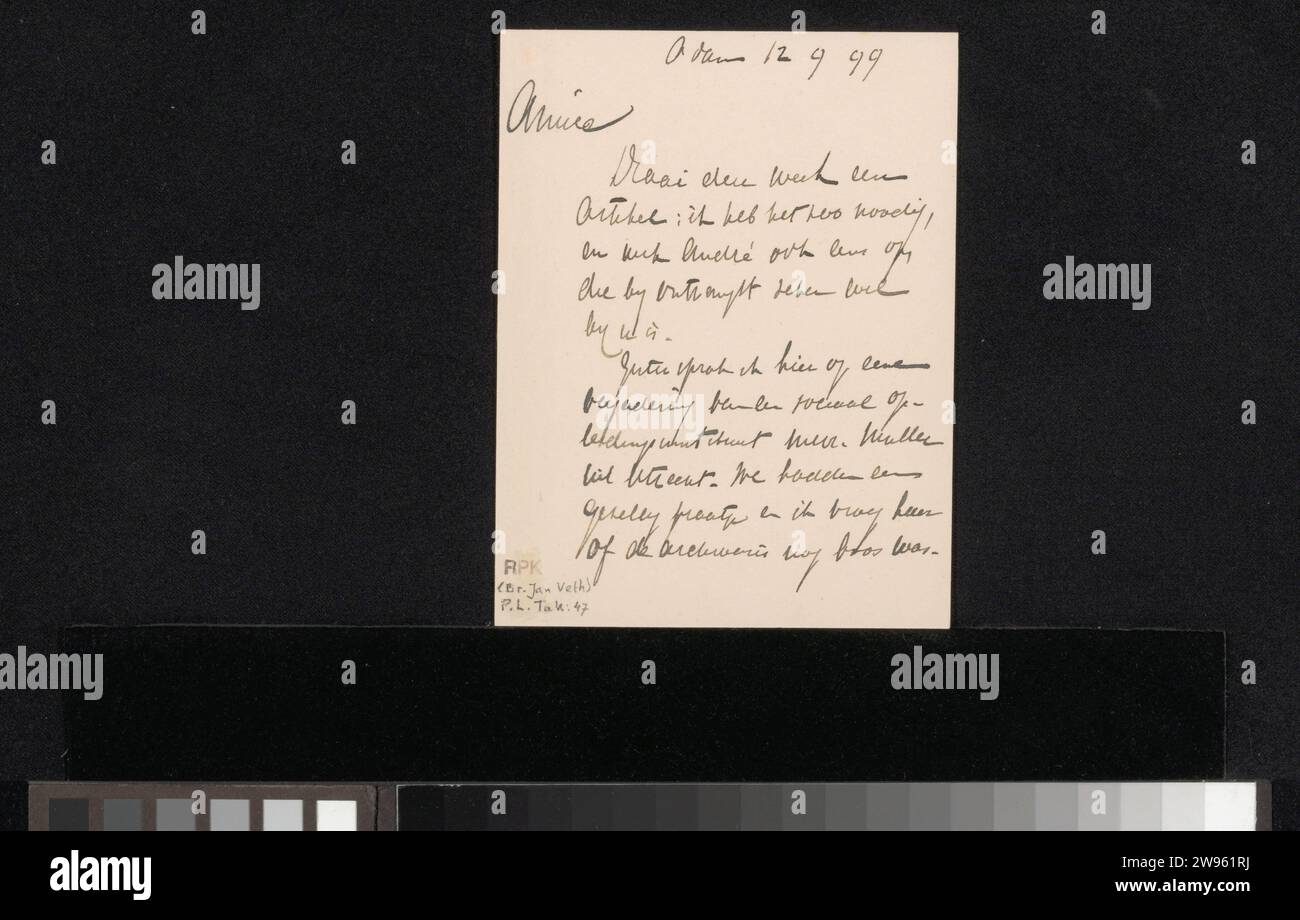 Adam 12 9 99
Amice
Draai deze week een
artikel: ik heb het zoo noodig,
en wek André ook eens op,
die by ontvangst dezer wel
by u is.
Gister sprak ik hier op eene
vergadering van den sociaal op-
leidingsinstituut Mevr. Muller
uit Utrecht. We hadden een
gezellig praatje en ik vroeg haar
of de archivaris nog boos was.
RPK
(Br. Jan Veth)
P.L. Tak: 47
alamy
alamy
Image ID: 2W961RJ
www.alamy.com